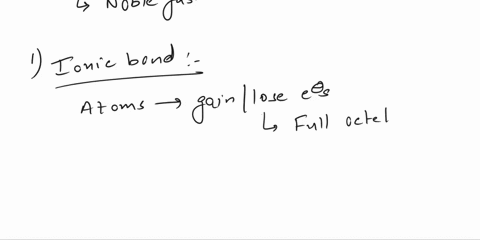 ↳ Noble gas
1) Ionic bond :-
Atoms → gain | lose e⊖s
↳ Full octet